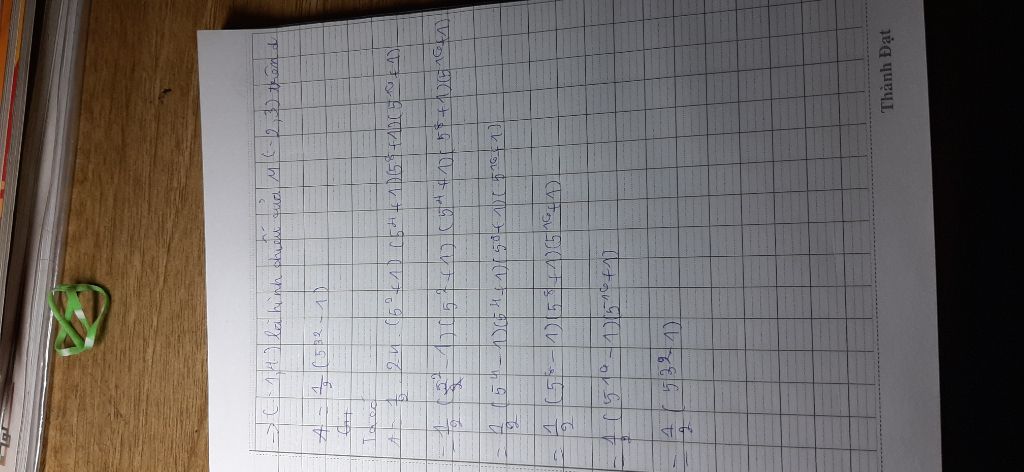 => (-1,4) là hình chiếu của M (-2,3) trên d
A = 1/2 (5³² - 1)
Ta có
A = 1/2 . 24 . (5² + 1) (5⁴ + 1) (5⁸ + 1) (5¹⁶ + 1)
= 1/2 (5² - 1) (5² + 1) (5⁴ + 1) (5⁸ + 1) (5¹⁶ + 1)
= 1/2 (5⁴ - 1) (5⁴ + 1) (5⁸ + 1) (5¹⁶ + 1)
= 1/2 (5⁸ - 1) (5⁸ + 1) (5¹⁶ + 1)
= 1/2 (5¹⁶ - 1) (5¹⁶ + 1)
= 1/2 (5³² - 1)
Thành Đạt